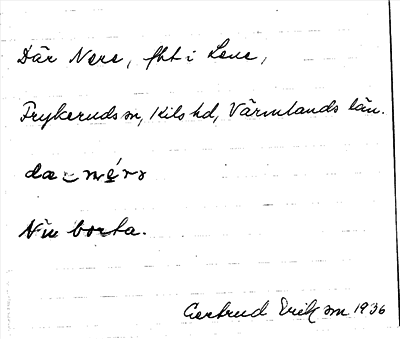 Där Ners, fht i Lene,
Frykeruds sn, Kils hd, Värmlands län.
Nu borta.
Gertrud Ericson 1936